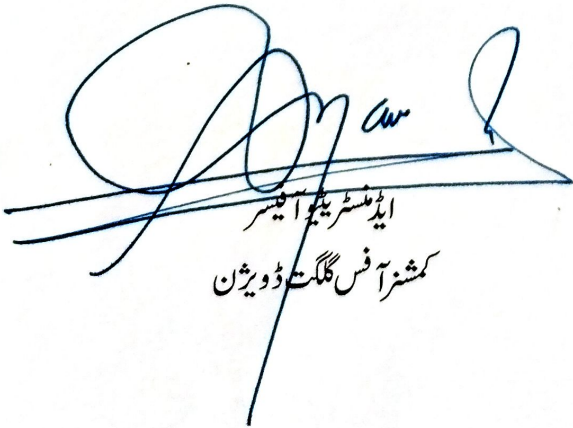 ایڈمنسٹریٹیو آفیسر
کمشنر آفس گلگت ڈویژن